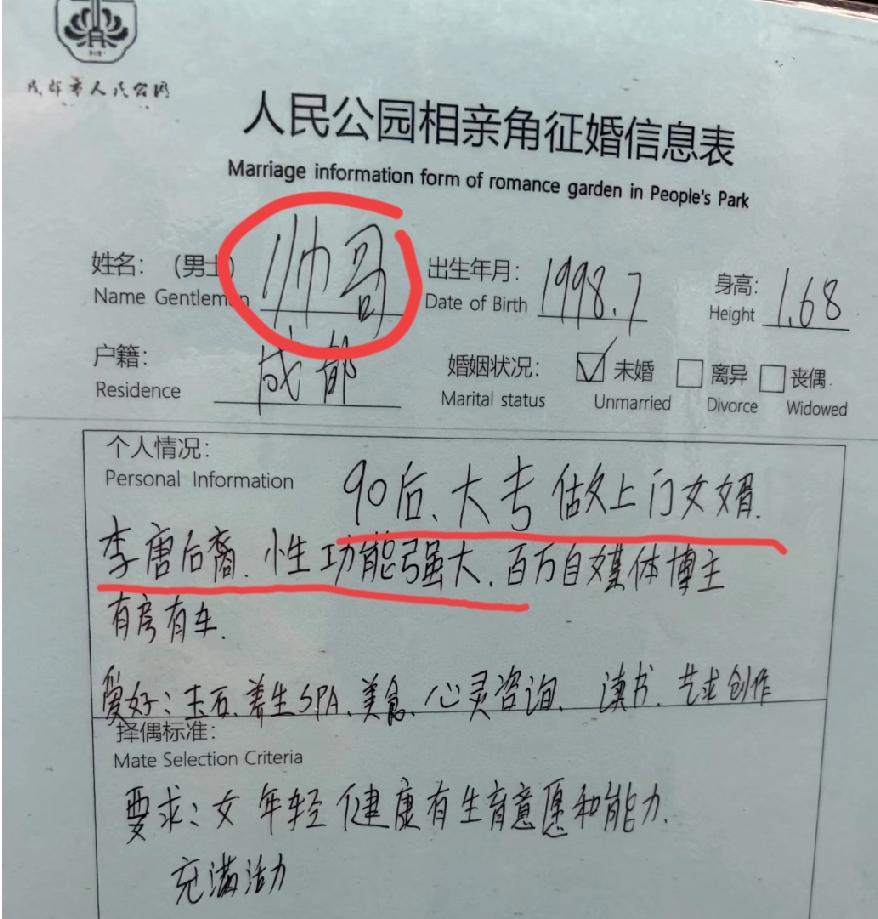 成都市人民公园
人民公园相亲角征婚信息表
Marriage information form of romance garden in People's Park
姓名: (男士) 帅哥 出生年月: 1998.7 身高: 1.68
Name Gentlemen Date of Birth Height
户籍: 成都 婚姻状况: ☑ 未婚 □ 离异 □ 丧偶
Residence Marital status Unmarried Divorce Widowed
个人情况:
Personal Information
90后、大专 做上门女婿.
李唐后裔. 性功能强大. 百万自媒体博主
有房有车.
爱好: 玉石、养生SPA、美食、心灵咨询、读书、艺术创作
择偶标准:
Mate Selection Criteria
要求: 女 年轻 健康有生育意愿和能力.
充满活力